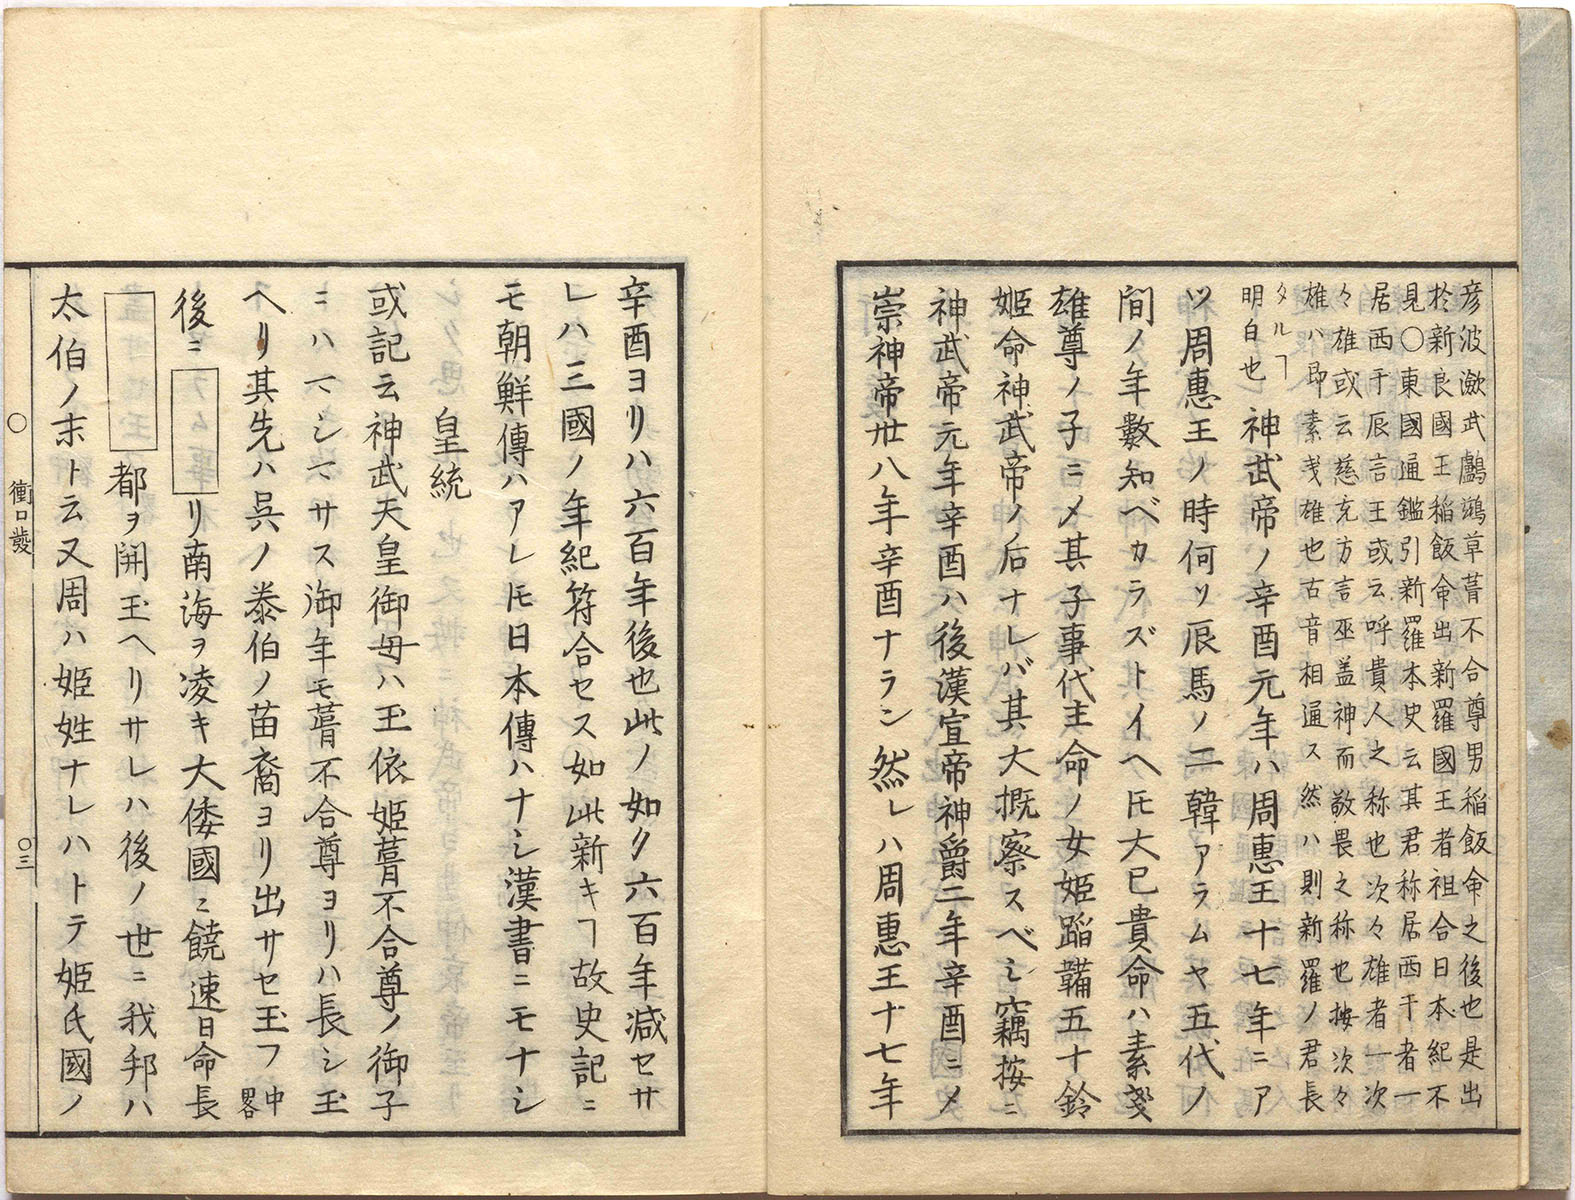 彦波瀲武鸕鷀草葺不合尊男稲飯命之後也是出
於新良國王稲飯命出新羅國王者祖合日本紀不
見〇東國通鑑引新羅本史云其君称居西干者一
居西干辰言王或云呼貴人之称也次々雄者一次
々雄或云慈充方言巫盖神而敬畏之称也按次々
雄ハ即素戔雄也古音相通ス然ハ則新羅ノ君長
タルヿ
明白也
神武帝ノ辛酉元年ハ周惠王十七年ニア
ツ周惠王ノ時何ソ辰馬ノ二韓アラムヤ五代ノ
間ノ年數知ベカラズトイヘ𪜈大已貴命ハ素戔
雄尊ノ子ニメ其子事代主命ノ女姫蹈韛五十鈴
姫命神武帝ノ后ナレバ其大概察スベシ竊按ニ
神武帝元年辛酉ハ後漢宣帝神爵二年辛酉ニメ
崇神帝卅八年辛酉ナラン然レハ周惠王十七年
辛酉ヨリハ六百年後也此ノ如ク六百年減セサ
レハ三國ノ年紀符合セス如此新キヿ故史記ニ
モ朝鮮傳ハアレ𪜈日本傳ハナシ漢書ニモナシ
皇統
或記云神武天皇御母ハ玉依姫葺不合尊ノ御子
ニハマシマサス御年モ葺不合尊ヨリハ長シ玉
ヘリ其先ハ呉ノ泰伯ノ苗裔ヨリ出サセ玉フ中畧
後ニ リ南海ヲ凌キ大倭國ニ饒速日命長
都ヲ開玉ヘリサレハ後ノ世ニ我邦ハ
太伯ノ末ト云又周ハ姫姓ナレハトテ姫氏國ノ
〇 衝口發 〇三